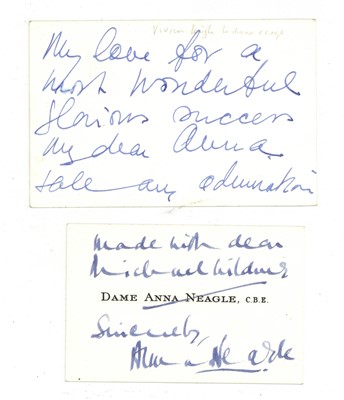 Vivien Leigh to Anna Neagle
My love for a
most wonderful
glorious success
my dear Anna
take my admiration
made with dear
Michael Wilding
DAME ANNA NEAGLE, C.B.E.
Sincerely,
Anna Neagle